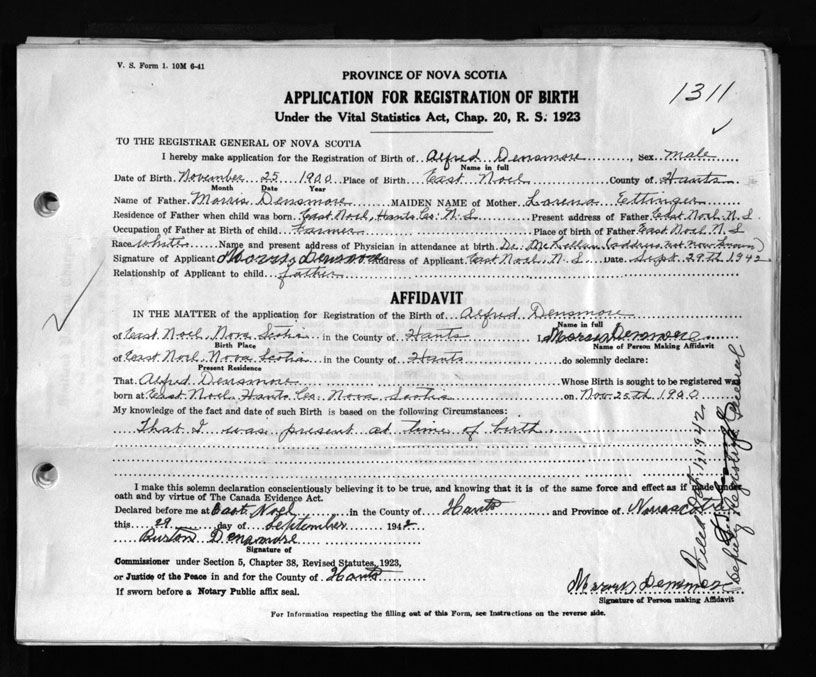 V. S. Form 1. 10M 6-41
PROVINCE OF NOVA SCOTIA
1311
APPLICATION FOR REGISTRATION OF BIRTH
Under the Vital Statistics Act, Chap. 20, R. S. 1923
TO THE REGISTRAR GENERAL OF NOVA SCOTIA
I hereby make application for the Registration of Birth of Alfred Densmore, Sex Male
Name in full
Date of Birth November 25 1900 Place of Birth East Noel County of Hants
Month Date Year
Name of Father Morris Densmore MAIDEN NAME of Mother Lorena Ettinger
Residence of Father when child was born East Noel, Hants Co: N.S. Present address of Father East Noel N.S
Occupation of Father at Birth of child Farmer Place of birth of Father East Noel N.S
Race White Name and present address of Physician in attendance at birth Dr. McKellan (address not now known)
Signature of Applicant Morris Densmore Address of Applicant East Noel, N.S. Date Sept 29th 1942
Relationship of Applicant to child father
AFFIDAVIT
IN THE MATTER of the application for Registration of the Birth of Alfred Densmore
Name in full
of East Noel, Nova Scotia in the County of Hants I, Morris Densmore
Birth Place Name of Person Making Affidavit
of East Noel, Nova Scotia in the County of Hants do solemnly declare:
Present Residence
That Alfred Densmore Whose Birth is sought to be registered was
born at East Noel, Hants Co: Nova Scotia on Nov 25th 1900
My knowledge of the fact and date of such Birth is based on the following Circumstances:
That I was present at time of birth.
I make this solemn declaration conscientiously believing it to be true, and knowing that it is of the same force and effect as if made under
oath and by virtue of The Canada Evidence Act.
Declared before me at East Noel in the County of Hants and Province of Nova Scotia
this 29 day of September 1942
Burton Densmore
Signature of
Commissioner under Section 5, Chapter 38, Revised Statutes, 1923,
or Justice of the Peace in and for the County of Hants
Morris Densmore
If sworn before a Notary Public affix seal.
Signature of Person making Affidavit
For Information respecting the filling out of this Form, see Instructions on the reverse side.
Filed Oct 1, 1942
Deputy Registrar General